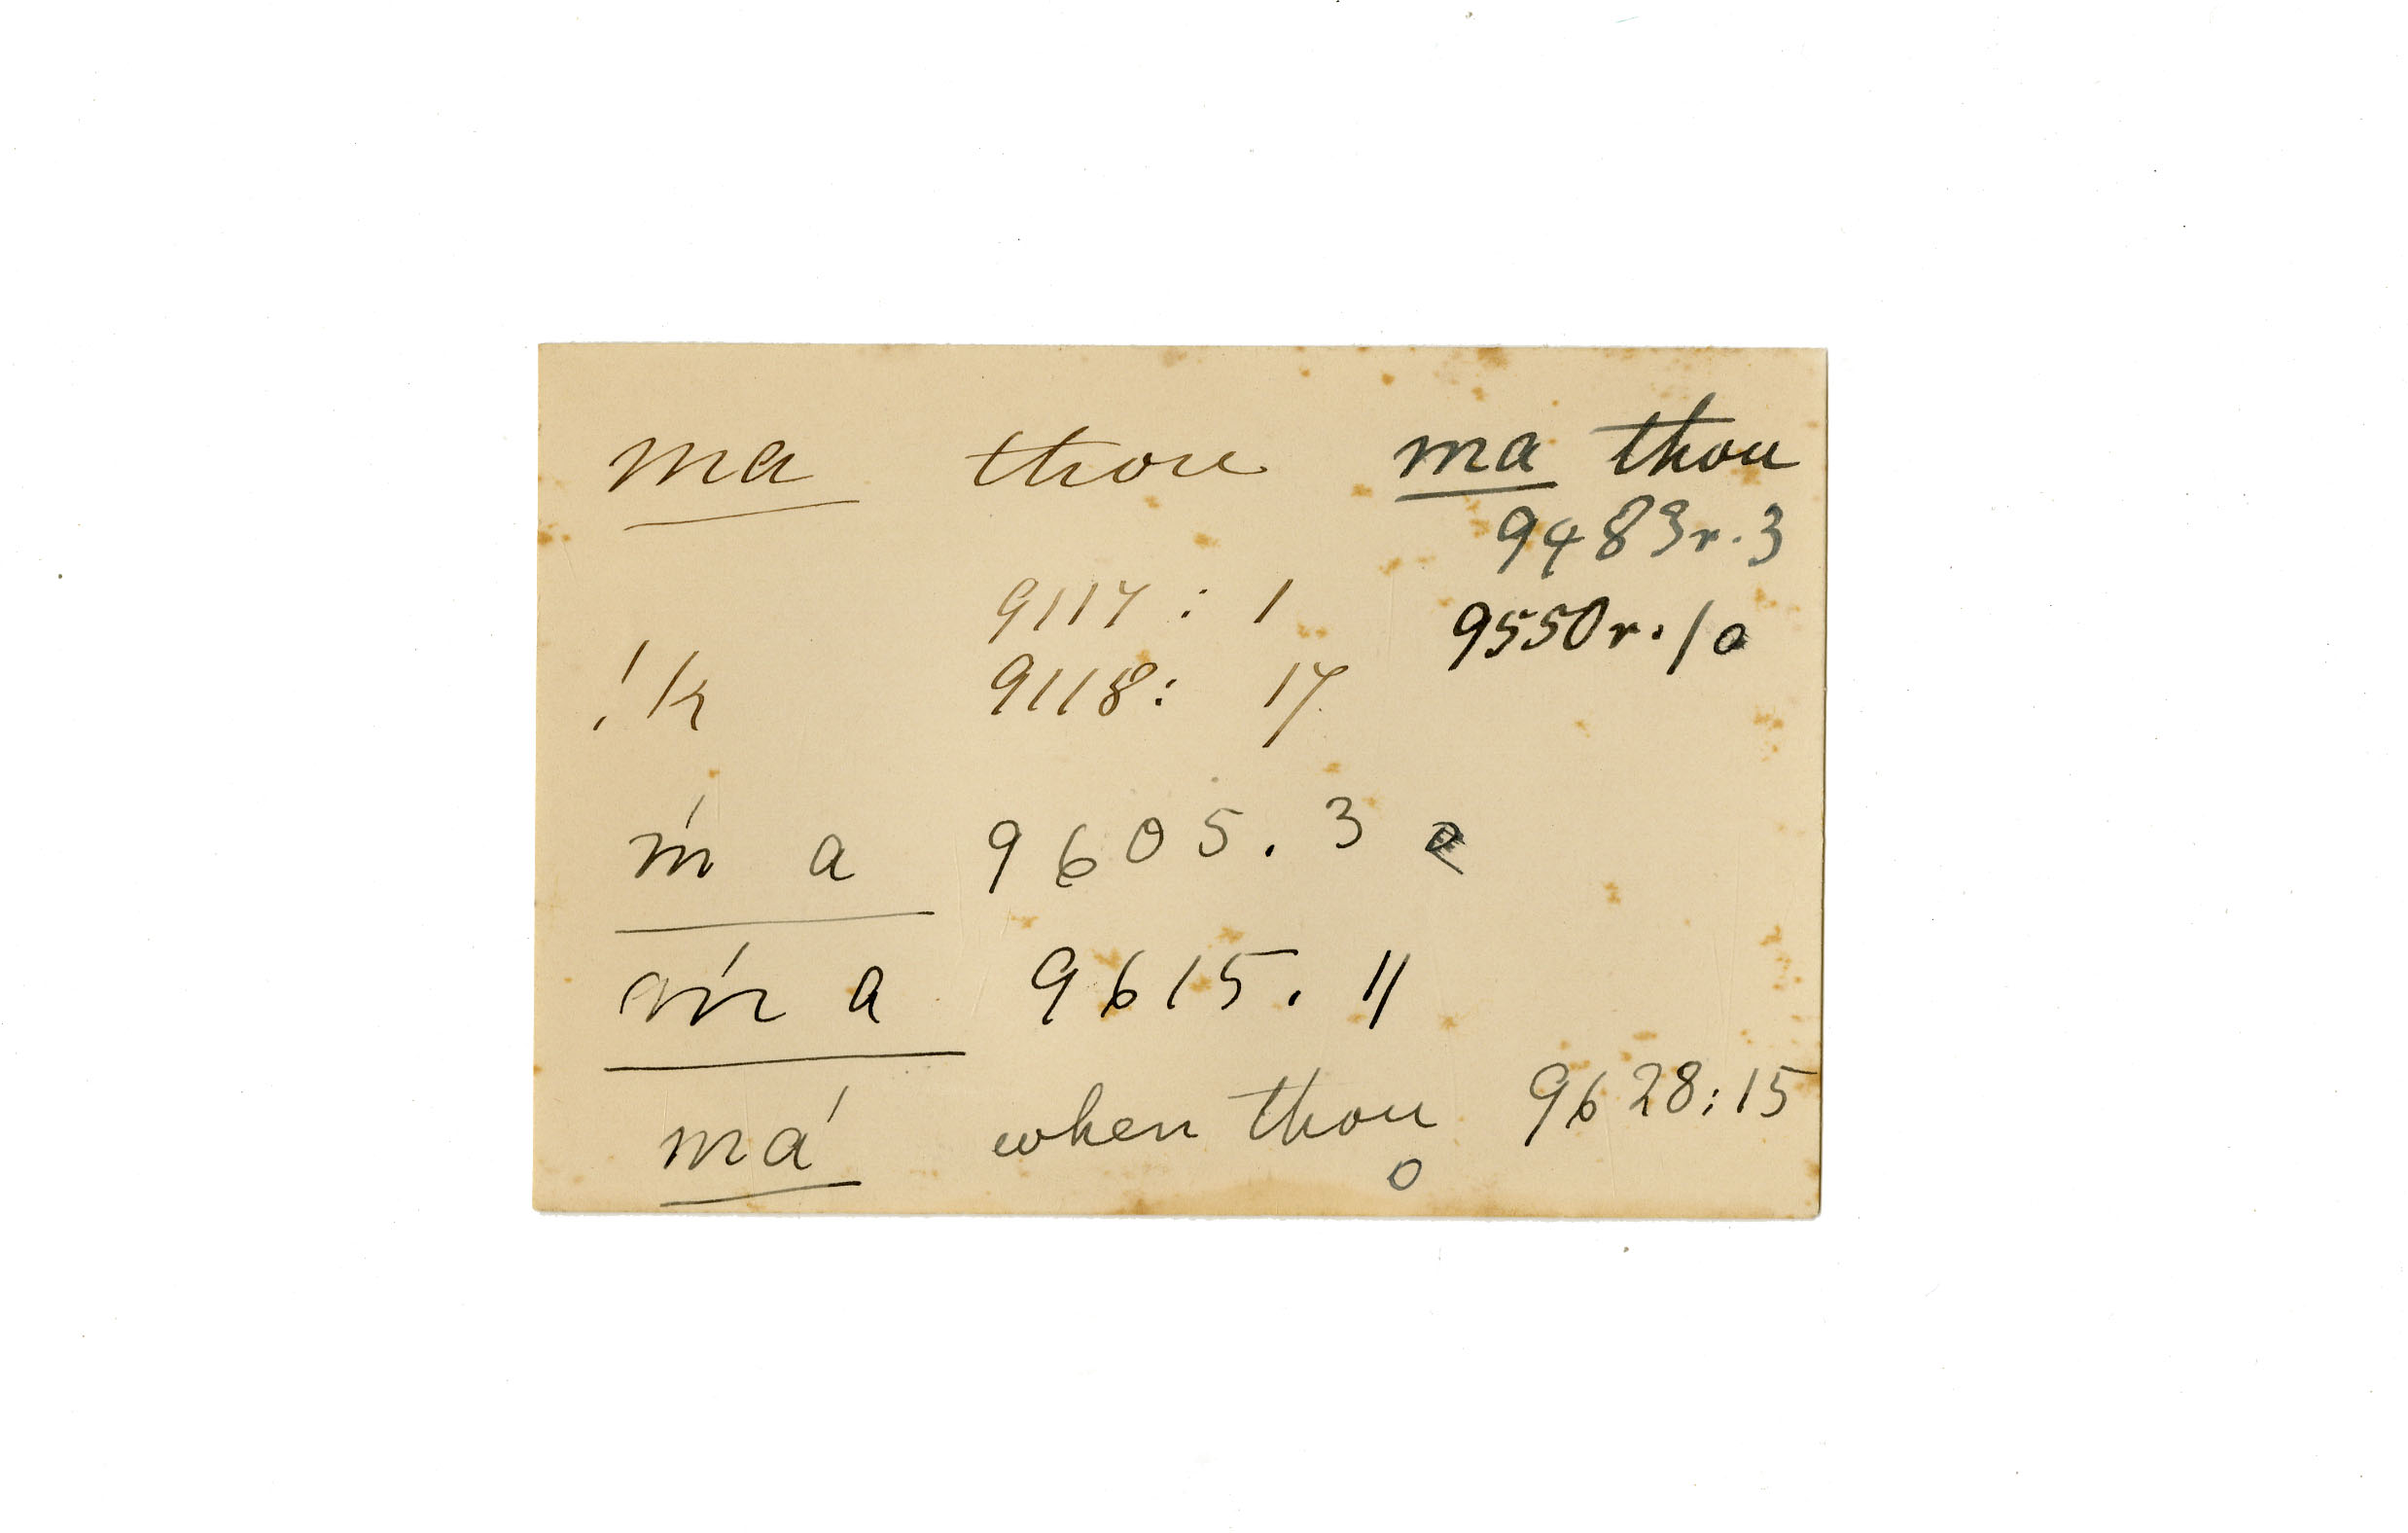 ma thou ma thou
9483r.3
9117 : 1 9550r.10
!k 9118: 17
ḿ a 9605.3
ḿ a 9615.11
má when thou 9628:15